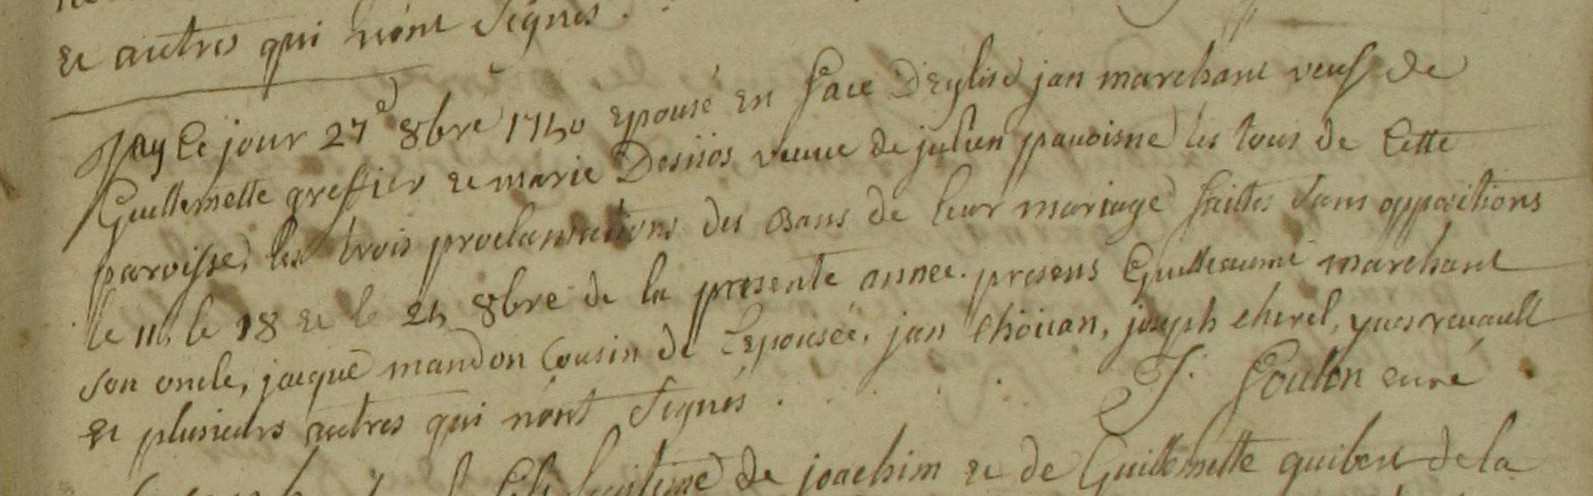 et autres qui n'ont signés.
J'ay ce jour 27e 8bre 1750 epousé en face D'Eglise jan marchant veuf de
Guillemette greffier et marie Desnos veuve de julien pavoisne les tous de Cette
paroisse, les trois proclamations des Bans de leur mariage faittes sans oppositions
le 11, le 18 et le 25 8bre de la presente annee. presens Guilleaume marchant
son oncle, jacque mandon Cousin de L'epousée, jan Chöüan, joseph cherel, yves revault
et plusieurs autres qui n'ont signés. J. Goulen curé
de joachim et de Guillemette guibert de la